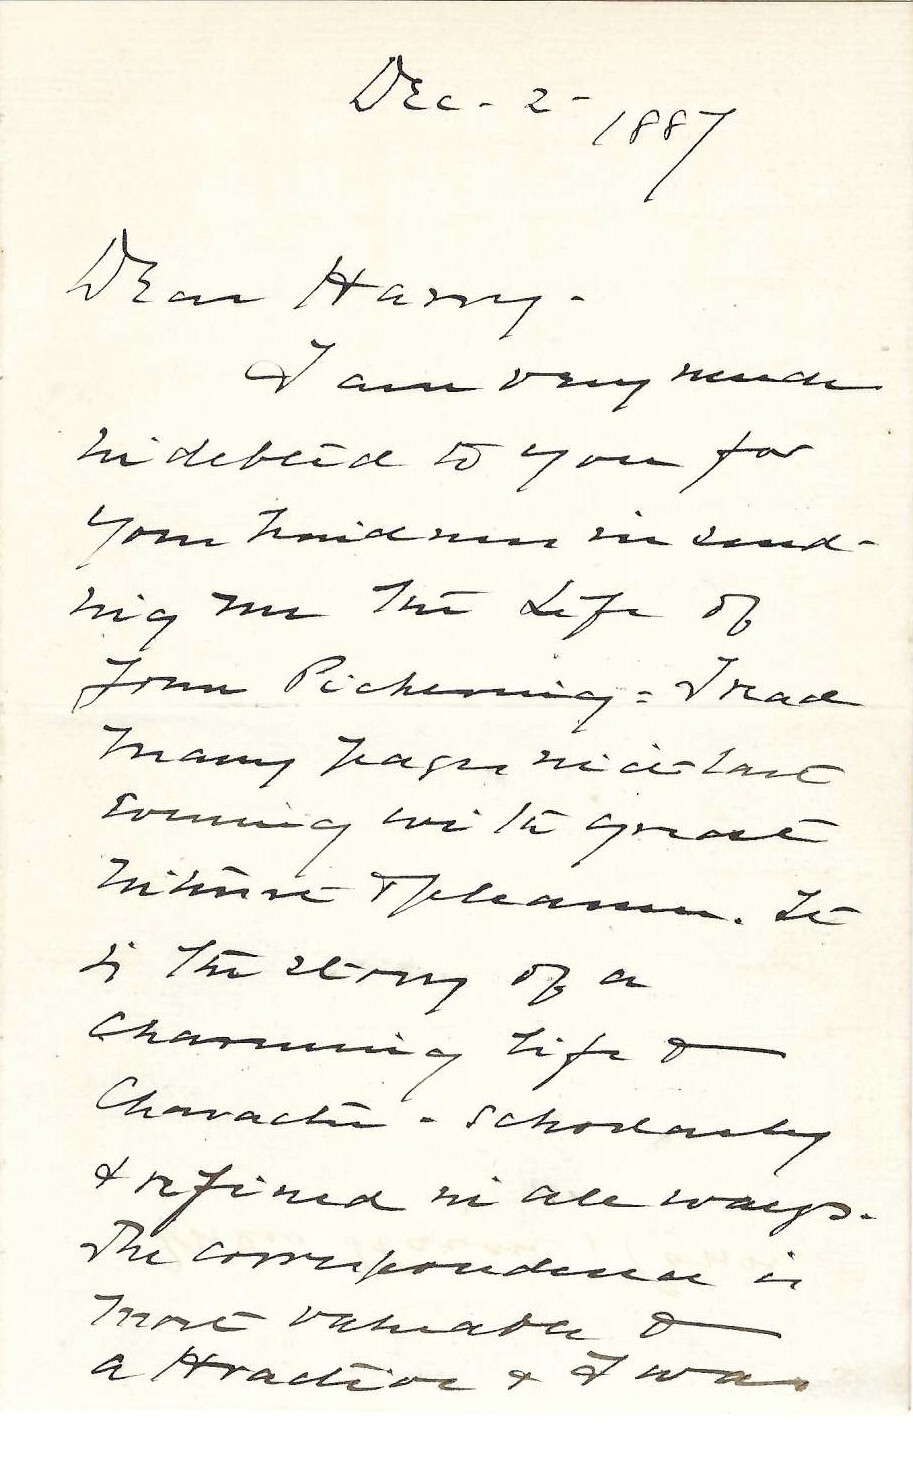 Dec - 2 - 1887
Dear Harry -
I am very much
indebted to you for
your kindness in send-
ing me the Life of
John Pickering = I read
many pages in it last
evening with great
interest & pleasure. It
is the story of a
charming life &
Character - scholarly
& refined in all ways.
The correspondence is
most valuable &
attractive & I was